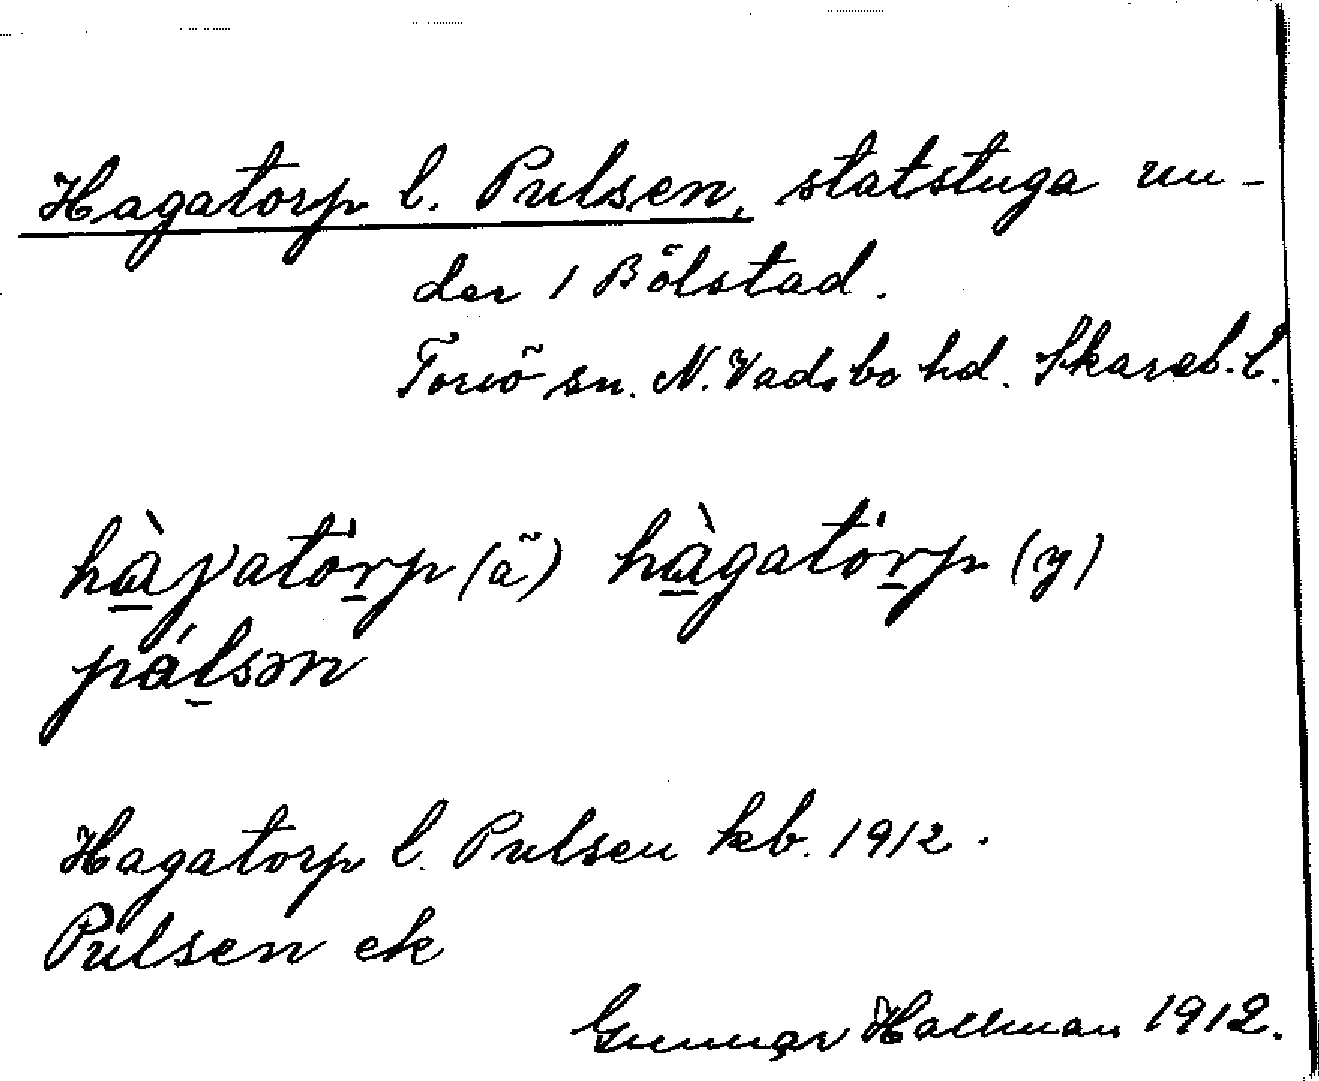 Hagatorp l. Pulsen, statstuga un-
der 1 Bölstad.
Torsö sn. N. Vadsbo hd. Skarab. l.
hàgatórp (ã) hàgatórp (y)
pálsən
Hagatorp l. Pulsen kb. 1912.
Pulsen ek
Gunnar Hallman 1912.